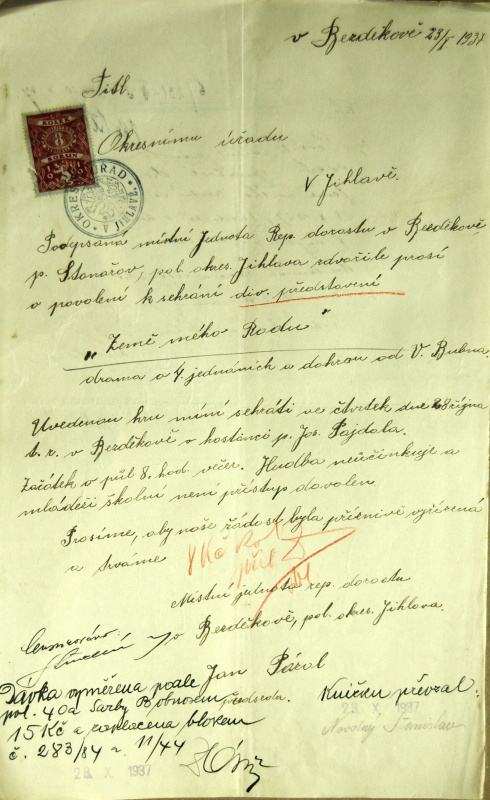 v Bezděkově 23/X 1937
Titl.
KOLEK
8
KORUN
Okresnímu úřadu
V Jihlavě.
OKRESNÍ ÚŘAD V JIHLAVĚ
Podepsaná místní Jednota Rep. dorostu v Bezděkově
p. Stonařov, pol. okres. Jihlava zdvořile prosí
o povolení k sehrání div. představení
„Země mého Rodu"
drama o 4 jednáních a dohrou od V. Bubna.
Uvedenou hru míní sehráti ve čtvrtek dne 28 října
t. r. v Bezděkově v hostinci p. Jos. Pajdala.
Začátek v půl 8. hod. večer. Hudba neúčinkuje a
mládeži školní není přístup dovolen.
Prosíme, aby naše žádost byla příznivě vyřízená
a trváme
Místní jednota rep. dorostu
v Bezděkově, pol. okres. Jihlava.
Cenzurováno:
Jan
předseda.
Dávka vyměřena podle
pol. 40a Sazby
15 Kč a zaplacena blokem
č. 283/84 11/44
28 X 1937
Knížku převzal:
28 X 1937
Novotný Stanislav